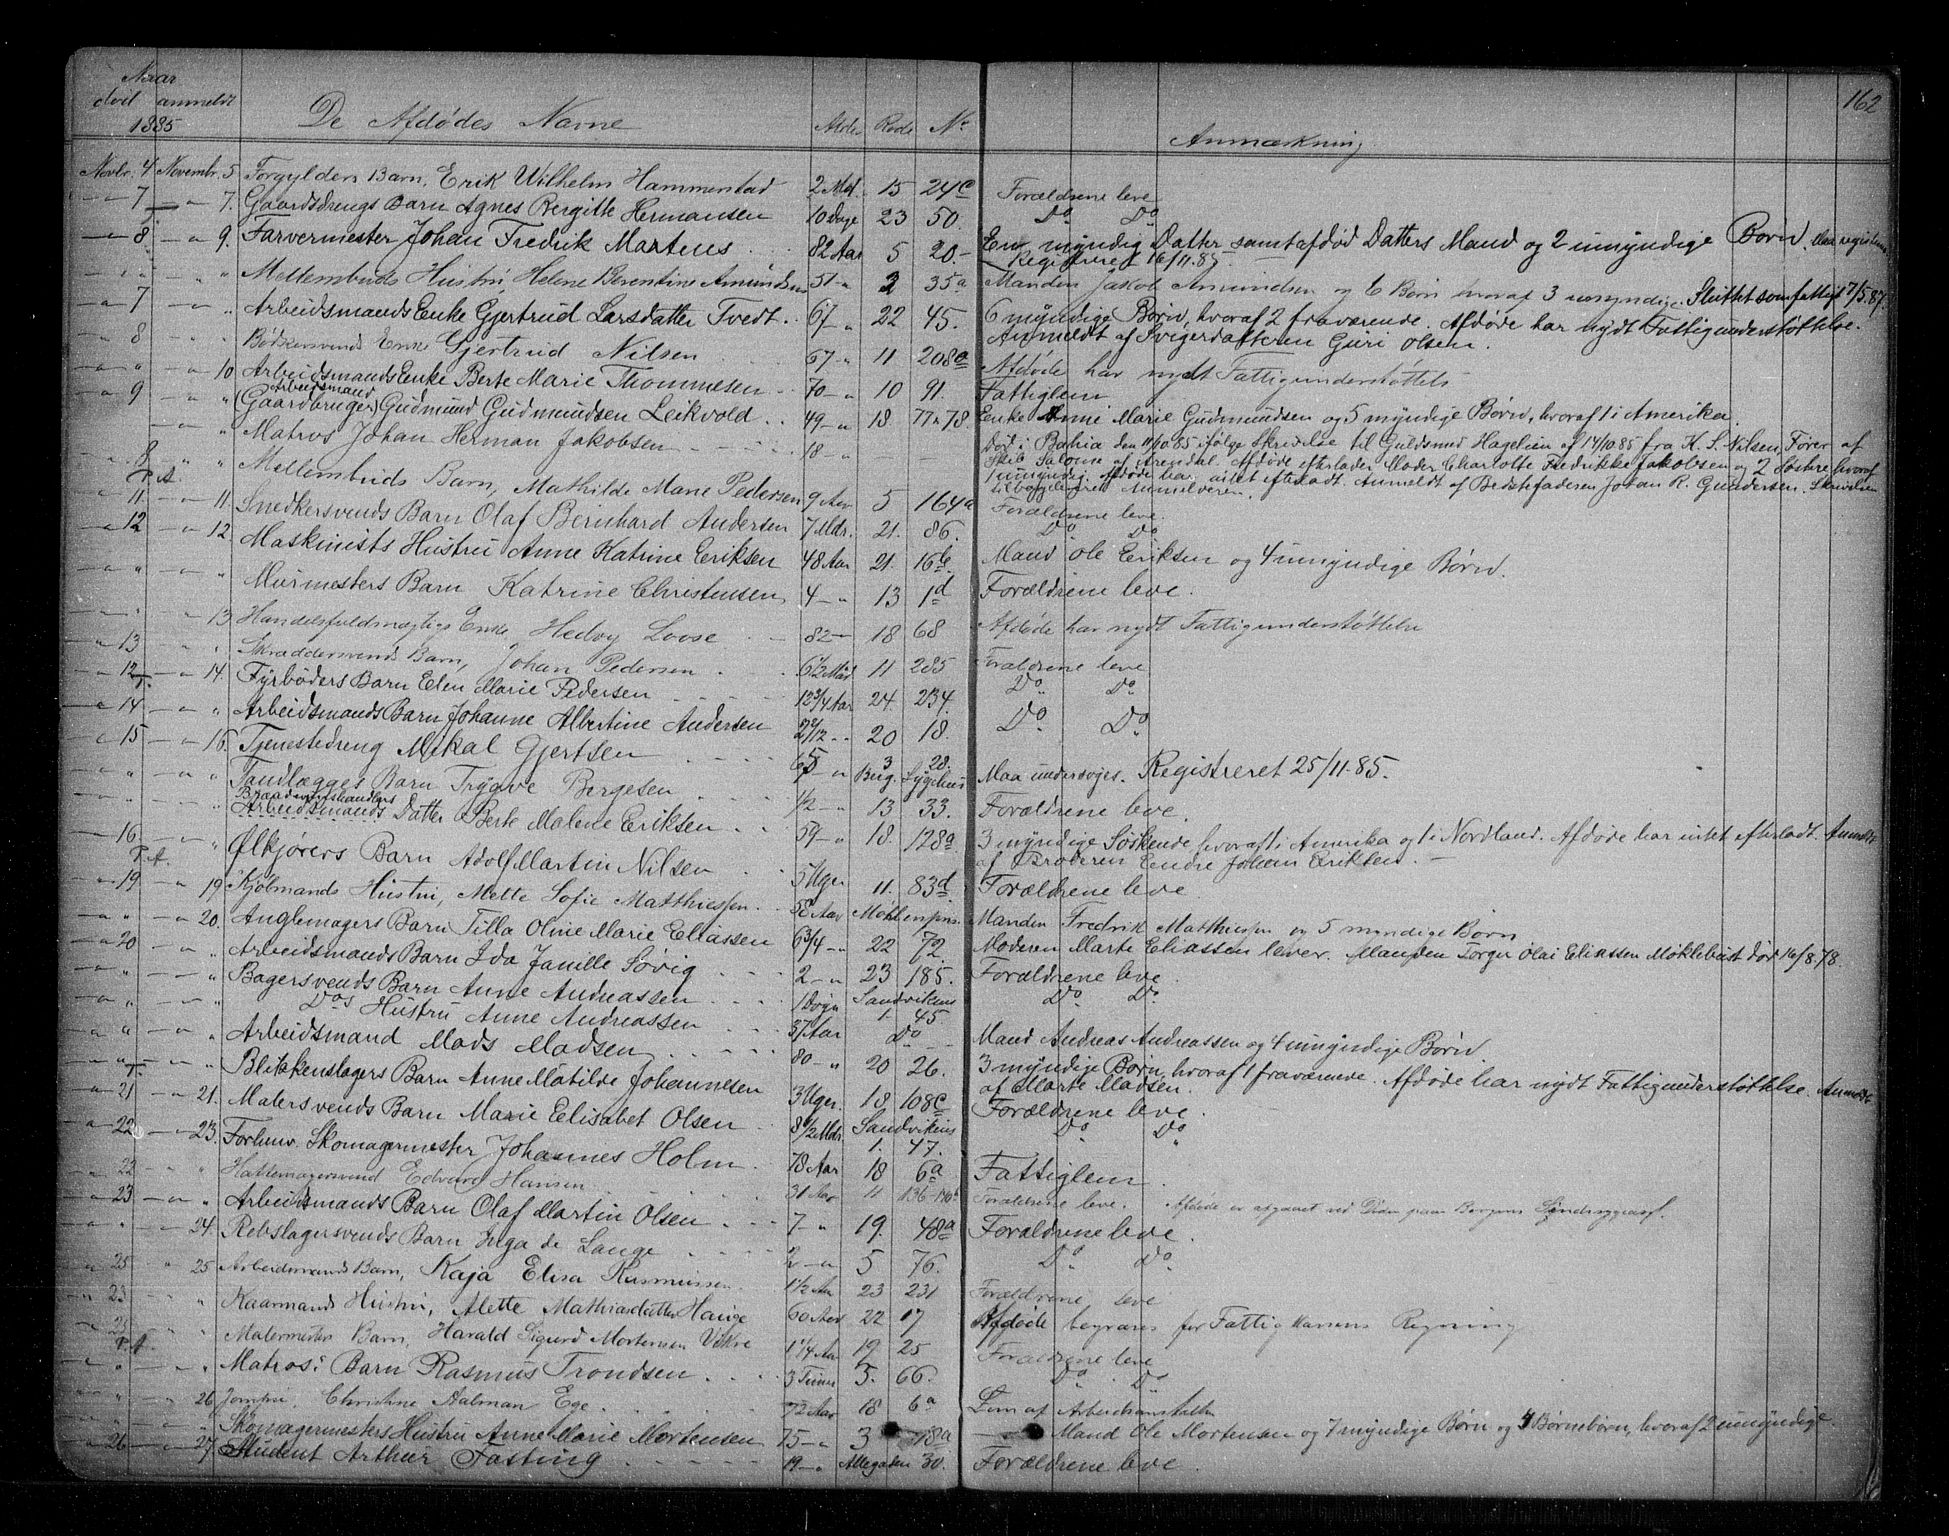 162
Naar
død anmeldt
1885
De Afdødes Navne Alder Rode No Anmærkning
Novbr. 4 Novembr. 5 Forgylders Barn, Erik Wilhelm Hammerstad 2 Md. 15 24c Forældrene leve
" 7 — " 7. Gaardsdrengs Barn Agnes Bergitte Hermansen 10 Dage 23 50. Do Do
" 8 — " 9. Farvermester Johan Fredrik Martens 82 Aar 5 20. En myndig Datter samt afdød Datters Mand og 2 umyndige Børn
Registreret 16/11.85.
" " Mellembuds Hustru, Helene Berentine Amundsen 51 " 2 35a Manden Jakob Amundsen og 6 Børn hvoraf 3 umyndige. Sluttet som fattigt 7/5.87.
" 7 " Arbeidsmands Enke Gjertrud Larsdatter Tvedt 67 " 22 45. 6 myndige Børn, hvoraf 2 fraværende. Afdøde har nydt Fattigunderstøttelse.
Anmeldt af Svigerdatteren Guri Olsen.
" 8 " Bødkersvends Enke Gjertrud Nilsen 67 " 11 208a Afdøde har nydt Fattigunderstøttels
" " 10. Arbeidsmands Enke Berte Marie Thommesen 70 " 10 91. Fattiglem
Arbeidsmand
" 9 " (Gaardbruger) Gudmund Gudmundsen Leikvold 49 " 18 77 " 78. Enke Anne Marie Gudmundsen og 5 myndige Børn, hvoraf 1 i Amerika
" Matros Johan Herman Jakobsen 18 " Død i Bahia den 11/10.85 ifølge Skrivelse til Guldsmed Hagelsen af 14/10.85 fra K. S. Nilsen, Fører af
Skib Salome af Arendal. Afdøde efterlader Moder Charlotte Fredrikke Jakobsen og 2 Søstre hvoraf
1 umyndig. Afdøde har intet efterladt. Anmeldt af Bedstefaderen Johan R. Gundersen. Skrivelsen
tilbageleveret Anmelderen.
" 8 " " Mellembuds Barn, Mathilde Marie Pedersen 9 Aar 5 164a Forældrene leve.
" 11 — " 11. Snedkersvends Barn Olaf Bernhard Andersen 7 Mdr. 21. 86. Do Do
" 12 — " 12. Maskinists Hustru Anne Katrine Eriksen 48 Aar 21. 16 Mand Ole Eriksen og 4 umyndige Børn.
" " " Murmesters Barn Katrine Christensen 4 — " 13 1d Forældrene leve.
" " 13 Handelsfuldmægtigs Enke, Hedvig Loose 82 — 18 68 Afdøde har nydt Fattigunderstøttelse
" 13 " " Skræddersvends Barn, Johan Pedersen 6 1/2 Mdr 11 285 Forældrene leve
" 12 — " 14. Fyrbøders Barn Elen Marie Pedersen 12 3/4 Aar 24. 234. Do Do
" 14 — " " Arbeidsmands Barn Johanne Albertine Andersen 2 2/12 " 20 18. Do Do
" 15 — " 16. Tjenestedreng Mikal Gjertsen Berg. Sygehus Maa undersøges. Registreret 25/11.85.
" " Tandlægges Barn Trygve Bergesen 1/2 — " 13 33. Forældrene leve.
Brændevinshandlers
" " Arbeidsmands Datter Berte Malene Eriksen 59 — " 18. 128a 3 myndige Søskende, hvoraf 1 i Amerika og 1 i Nordland. Afdøde har intet efterladt. Anmeldt
af Broderen Endre Johan Eriksen. —
" 16. — " " Ølkjørers Barn Adolf Martin Nilsen 5 Uger 11. 83d. Forældrene leve
" 19 — " 19. Kjølmands Hustru, Mette Sofie Matthiessen 58 Aar Møhlenpris. Manden Fredrik Matthiessen og 5 myndige Børn
" " — " 20. Anglemagers Barn Tilla Oline Marie Eliassen 6 3/4 — " 22 72. Moderen Marte Eliassen lever. Manden Torger Olai Eliassen Møklebust død 16/8.78.
" 20 — " " Arbeidsmands Barn Ida Jamille Søvig 2 — " 23 185. Forældrene leve.
" " — " " Bagersvends Barn Anne Andreassen 1 Døgn Sandvikens 1. 45 Do Do
" " — " " Dos Hustru Anne Andreassen 37 Aar Do Mand Andreas Andreassen og 4 umyndige Børn.
" " — " " Arbeidsmand Mads Madsen 80 — " 20 26. 3 myndige Børn, hvoraf 1 fraværende. Afdøde har nydt Fattigunderstøttelse. Anmeldt
af Marte Madsen.
" " — " " Blikkenslagers Barn Anne Matilde Johannesen 3 Uger. 18 108c Forældrene leve.
" 21 — " 21. Malersvends Barn Marie Elisabet Olsen 8 1/2 Mdr Sandvikens 1. 47. Do Do
" 22 — " 23. Forhenv. Skomagermester Johannes Holm 78 Aar 18 6a Fattiglem.
" 23 " Hattemagersvend Edvard Hansen 31 Aar 11 136 Forældrene leve. Afdøde er afgaaet ved Døden paa Bergens Sindssygeasyl.
" 23 — " " Arbeidsmands Barn Olaf Martin Olsen 7 — " 19. 48a Forældrene leve.
" " — 24. Rebslagersvends Barn Inga de Lange 2 — " 5 76. Do Do
" 25 " 25 Arbeidsmands Barn, Kaja Elisa Rasmussen 1 1/2 Aar 23 231 Forældrene leve
" 23 " Kaarmands Hustru, Alette Mathiasdatter Hauge 60 Aar 22 17 Afdøde begraves for Fattigkassens Regning
" 25 " Malermesters Barn, Harald Sigurd Mortensen Vikre 1 1/4 Aar 19 25 Forældrene leve
" " Matros: Barn Rasmus Trondsen 3 Timer 5. 66. Do Do
" " 26 Jomfru Christine Aalman Ege 72 Aar 18 6a Lem af Arbeidsanstalten
" " " Skomagermesters Hustru Anne Marie Mortensen 75 — " 3 18a Mand Ole Mortensen og 7 myndige Børn og 4 Børnebørn, hvoraf 2 umyndige.
" 26 — " 27. Student Arthur Fasting 19 — " Allegaten 30. Forældrene leve.